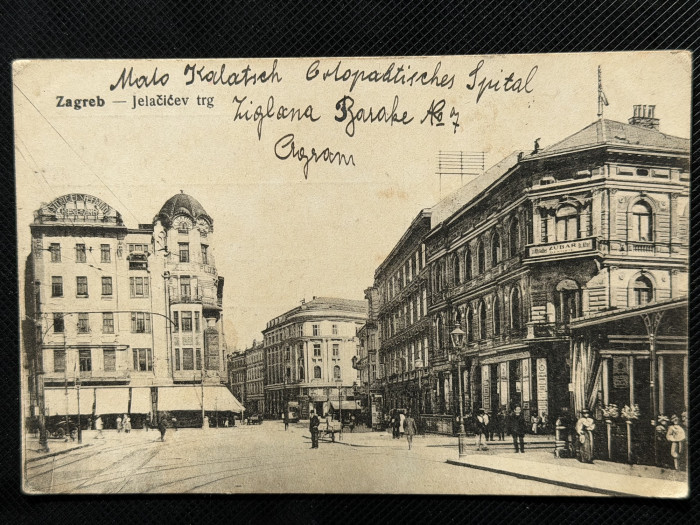 Mato Kalatsch Ortopädtisches Spital
Zagreb — Jelačićev trg
Ziglana Barake № 7
Agram
ZUBAR